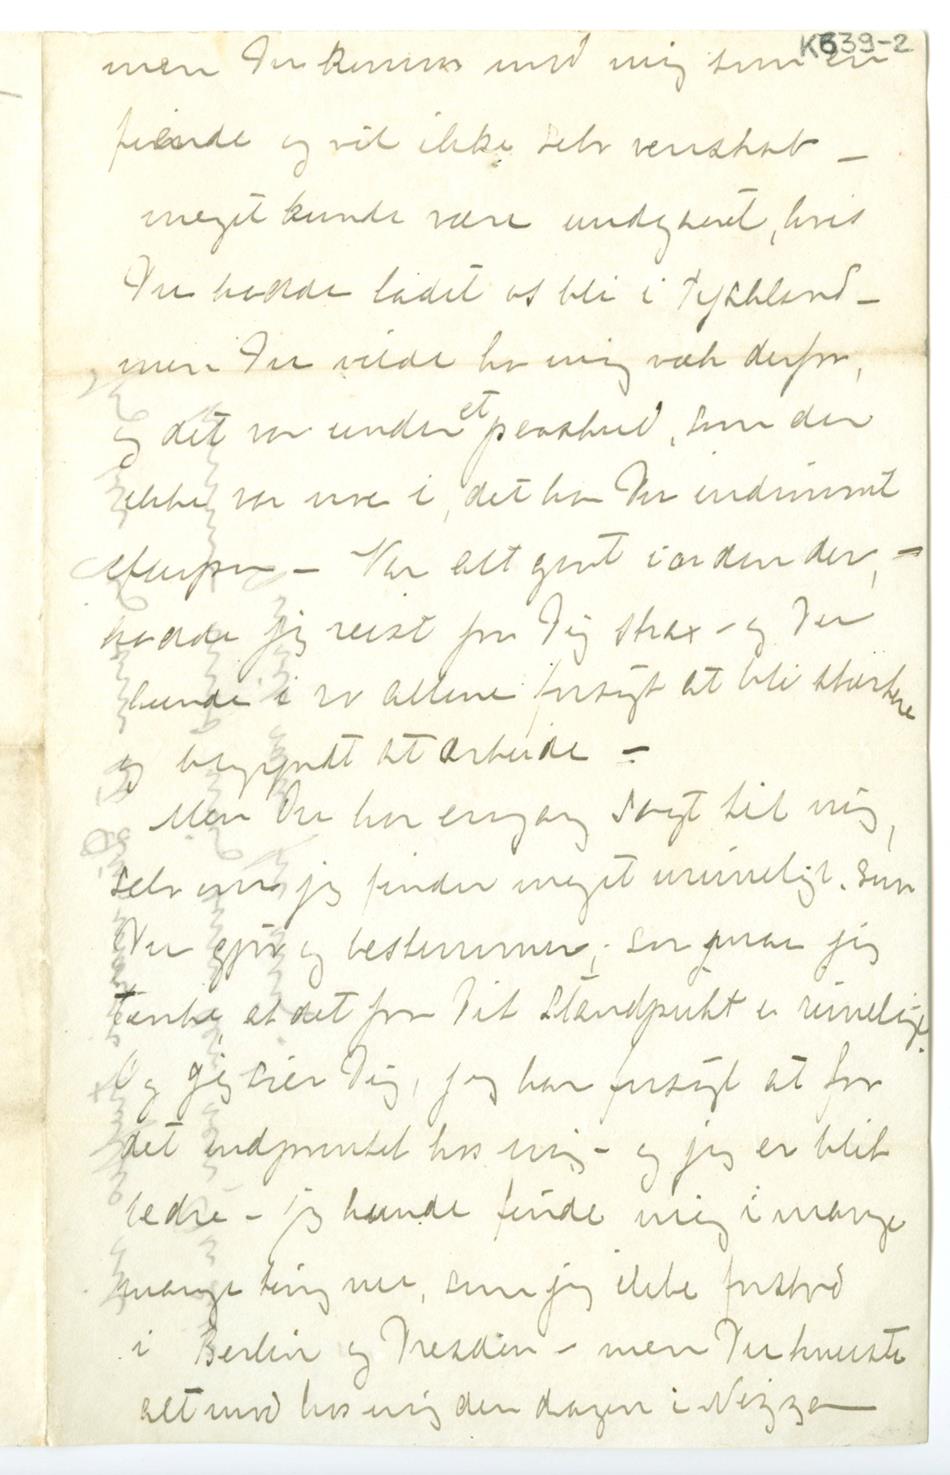 K639-2
men Du kommer mod mig som en
fiende og vil ikke selv venskab –
meget kunde være undgaaet, hvis
Du hadde ladet os bli i Tyskland –
men Du vilde ha mig væk derfra,
og det var under et paaskud, som der
ikke var noe i, det har Du indrømmet
efterpaa – Var alt gaat i orden der, –
hadde jeg reist fra Dig strax – og Du
kunde i ro allene forsøgt at bli stærkere
og begyndt at arbeide –
Men Du har engang sagt til mig,
selv om jeg finder meget urimeligt. som
Du gjør og bestemmer, saa maa jeg
tænke at det fra Dit Standpukt er rimeligt.
Og jeg sier Dig, jeg har forsøgt at faa
det indprentet hos mig – og jeg er blit
bedre – jeg kunde finde mig i mange
mange ting nu, som jeg ikke forstod
i Berlin og Dresden – men Du knuste
alt mod hos mig den dagen i Nizza –